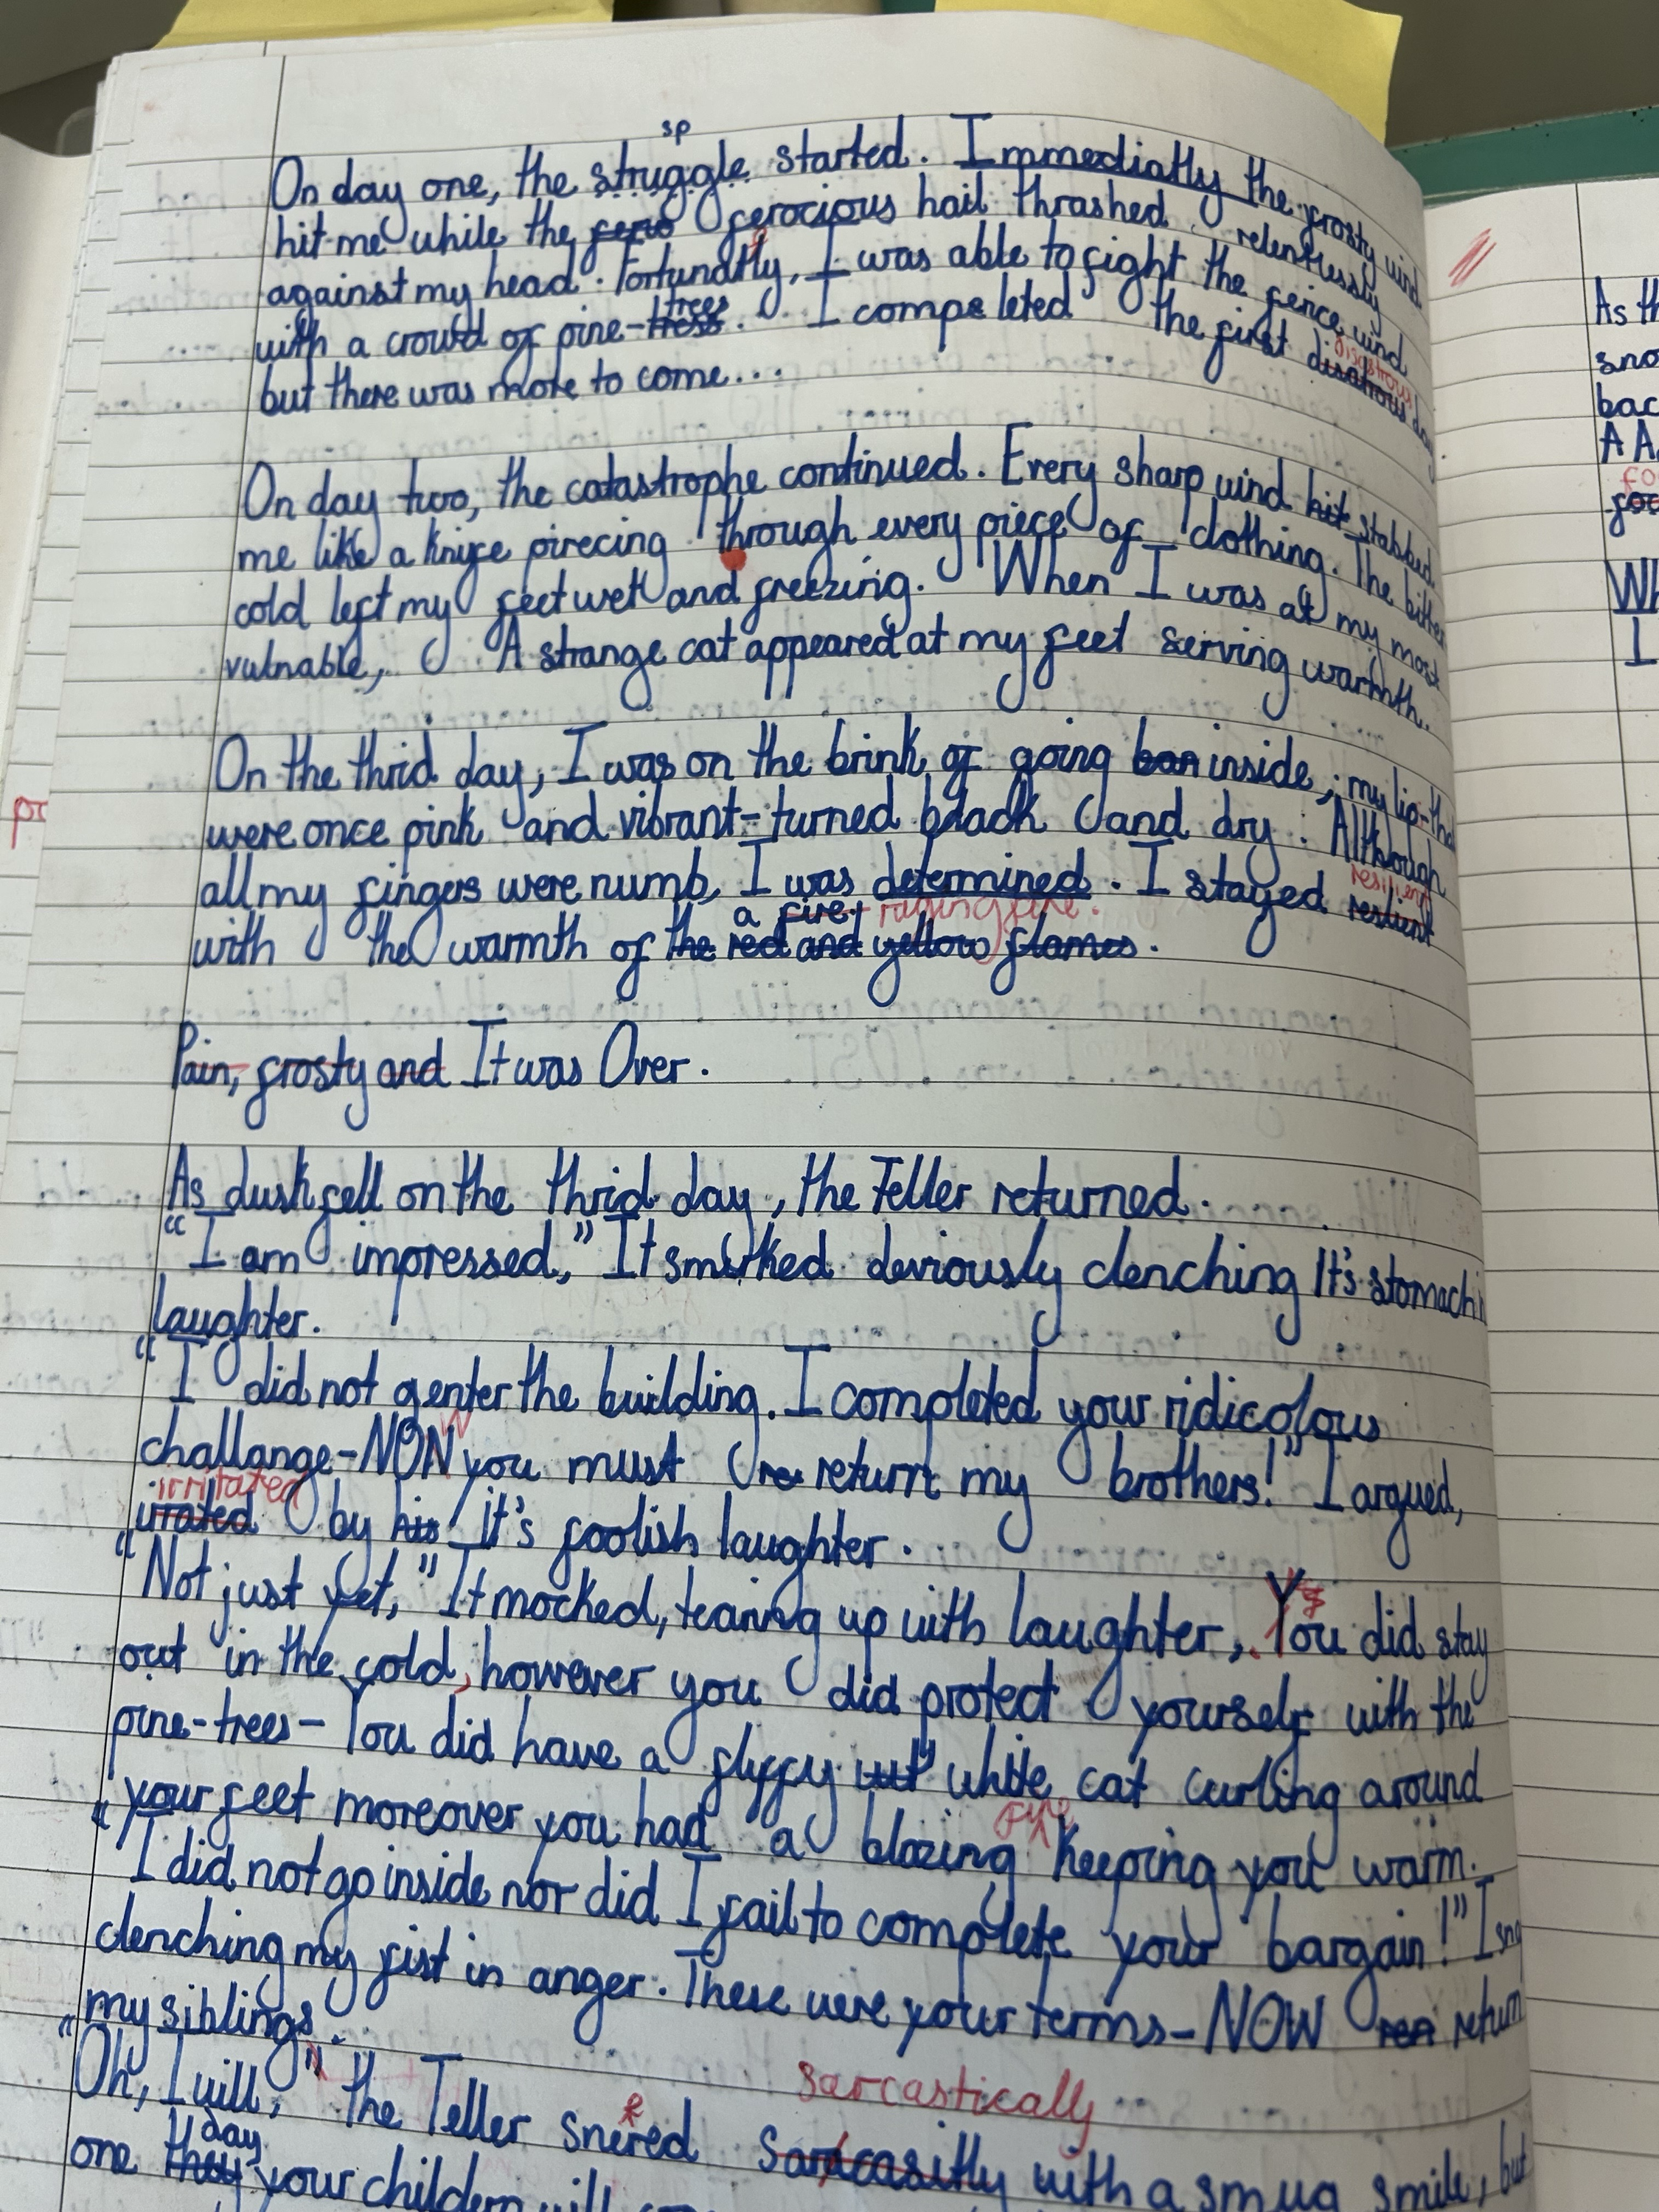 sp
On day one, the struggle started. Immediatly the frosty wind
hit me while the fero ferocious hail thrashed relentlessly
against my head. Fortunatly, I was able to fight the fence wind
e
with a crowd of pine-tress trees. I compeleted the first disatrous day
disastrous
but there was more to come...
On day two, the catastrophe continued. Every sharp wind hit stabbed
me like a knife pirecing through every piece of clothing. The bitter
cold left my feet wet and freezing. When I was at my most
vulnable, A strange cat appeared at my feet serving warmth.
On the thrid day, I was on the brink of going ban inside; my lip-tha
were once pink and vibrant-turned black and dry. Although
all my fingers were numb, I was determined. I stayed reslient
resilient
a fire. raging fire.
with the warmth of the red and yellow flames.
Pain, frosty and It was Over.
As dusk fell on the thrid day, the Teller returned.
"I am impressed," It smirked deviously clenching It's stomach in
laughter.
"I did not enter the building. I completed your ridicolous
challange-NON you must re return my brothers!" I argued,
W
irritated
irrated by his It's foolish laughter.
"Not just yet," It mocked, tearing up with laughter, You did stay
out in the cold, however you did protect yourself with the
pine-trees- You did have a fluffy wit white cat curling around
your feet moreover you had a blazing keeping you warm.
fire
"I did not go inside nor did I fail to complete your bargain!" I
clenching my fist in anger. These were your terms- NOW ren return
my siblings.
sarcastically
"Oh, I will," the Teller snered sarcasitly with a smug smile, but
e
day
one they your childern will
pr
As th
sno
bac
A A
foo
Wh
I